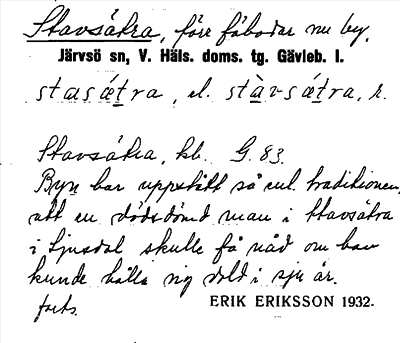 Stavsåkra, före fäbodar nu by,
Järvsö sn, V. Häls. doms. tg. Gävleb. l.
stasætra, el. stàvsætra, r.
Stavsåkra, kb. G. 83.
Byn har uppstått så enl. traditionen,
att en dödsdömd man i Stavsåkra
i Ljusdal skulle få nåd om han
kunde hålla sig dold i sju år.
forts.
ERIK ERIKSSON 1932.